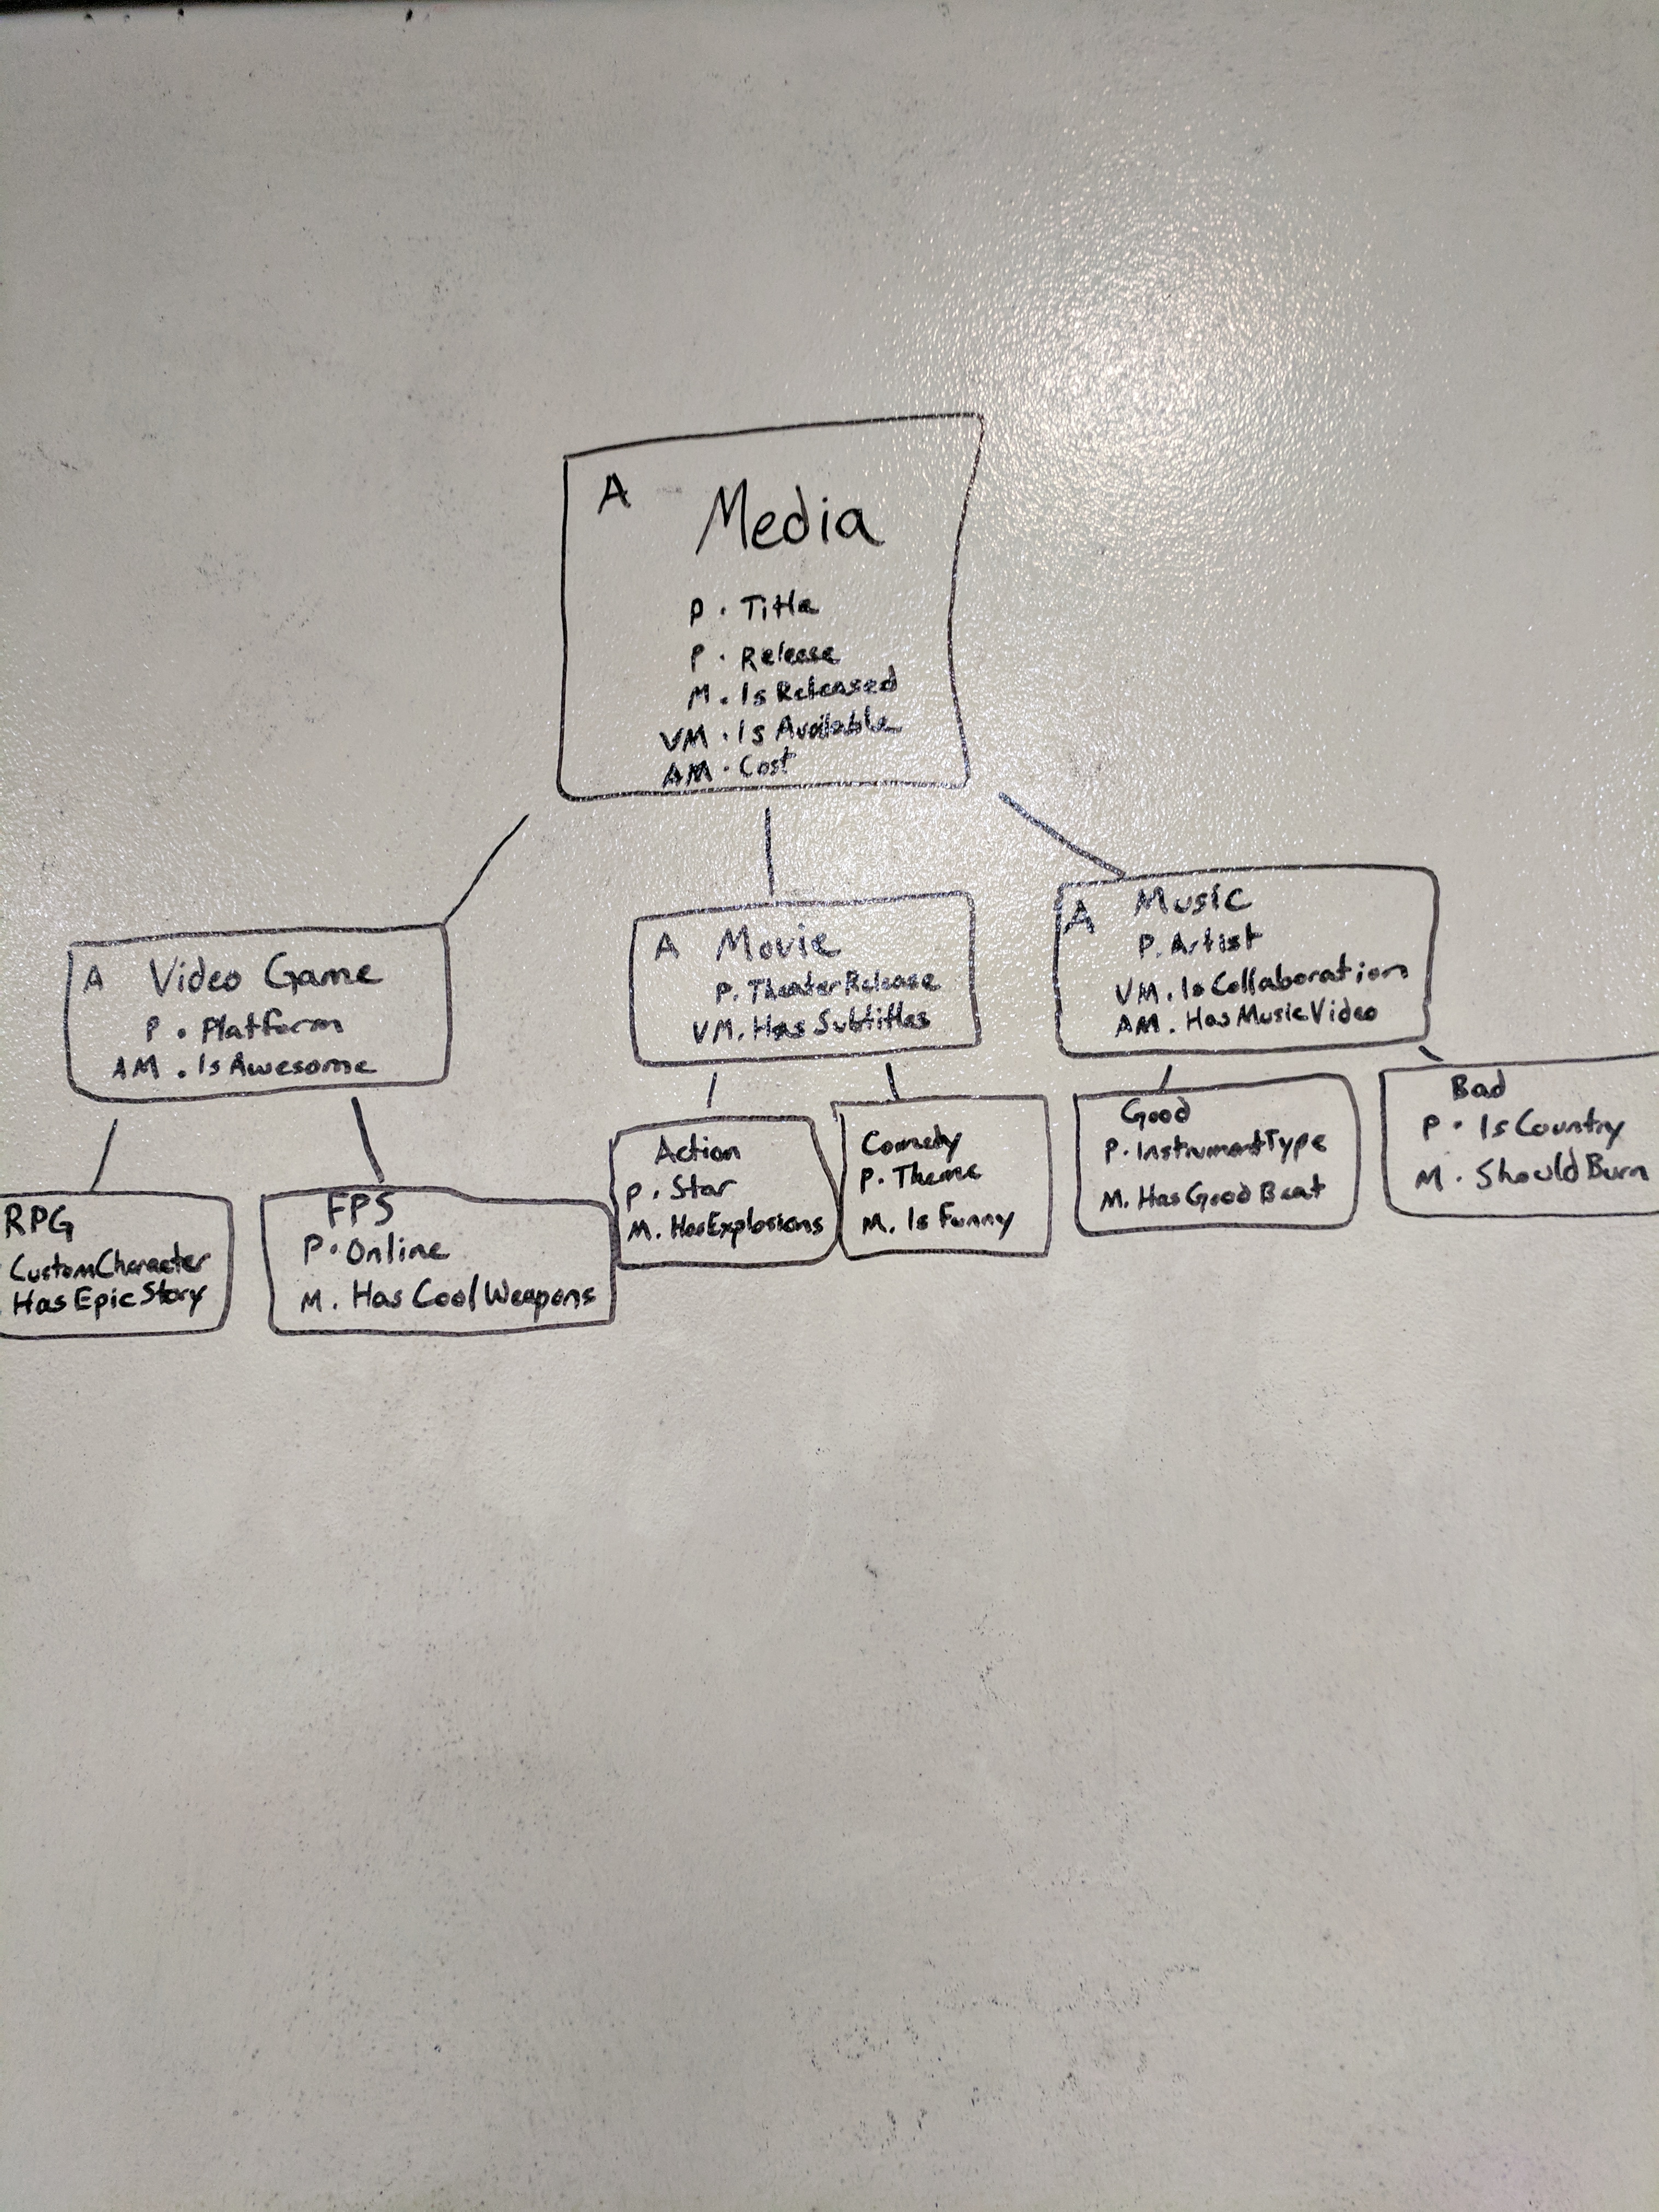 A Media
P . Title
P . Release
M . Is Released
VM . Is Available
AM . Cost
A Video Game
P . Platform
AM . Is Awesome
A Movie
P. TheaterRelease
VM. Has Subtitles
A Music
P. Artist
VM. IsCollaboration
AM. HasMusicVideo
RPG
CustomCharacter
Has Epic Story
FPS
P . Online
M. Has Cool Weapons
Action
P . Star
M. HasExplosions
Comedy
P. Theme
M. Is Funny
Good
P. InstrumentType
M. HasGoodBeat
Bad
P . IsCountry
M . ShouldBurn